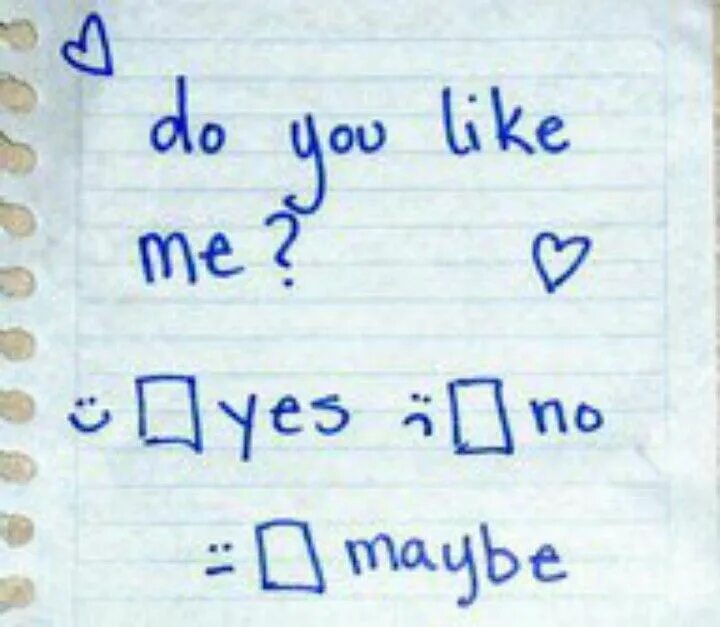 do you like
me?
☐ yes ☐ no
☐ maybe